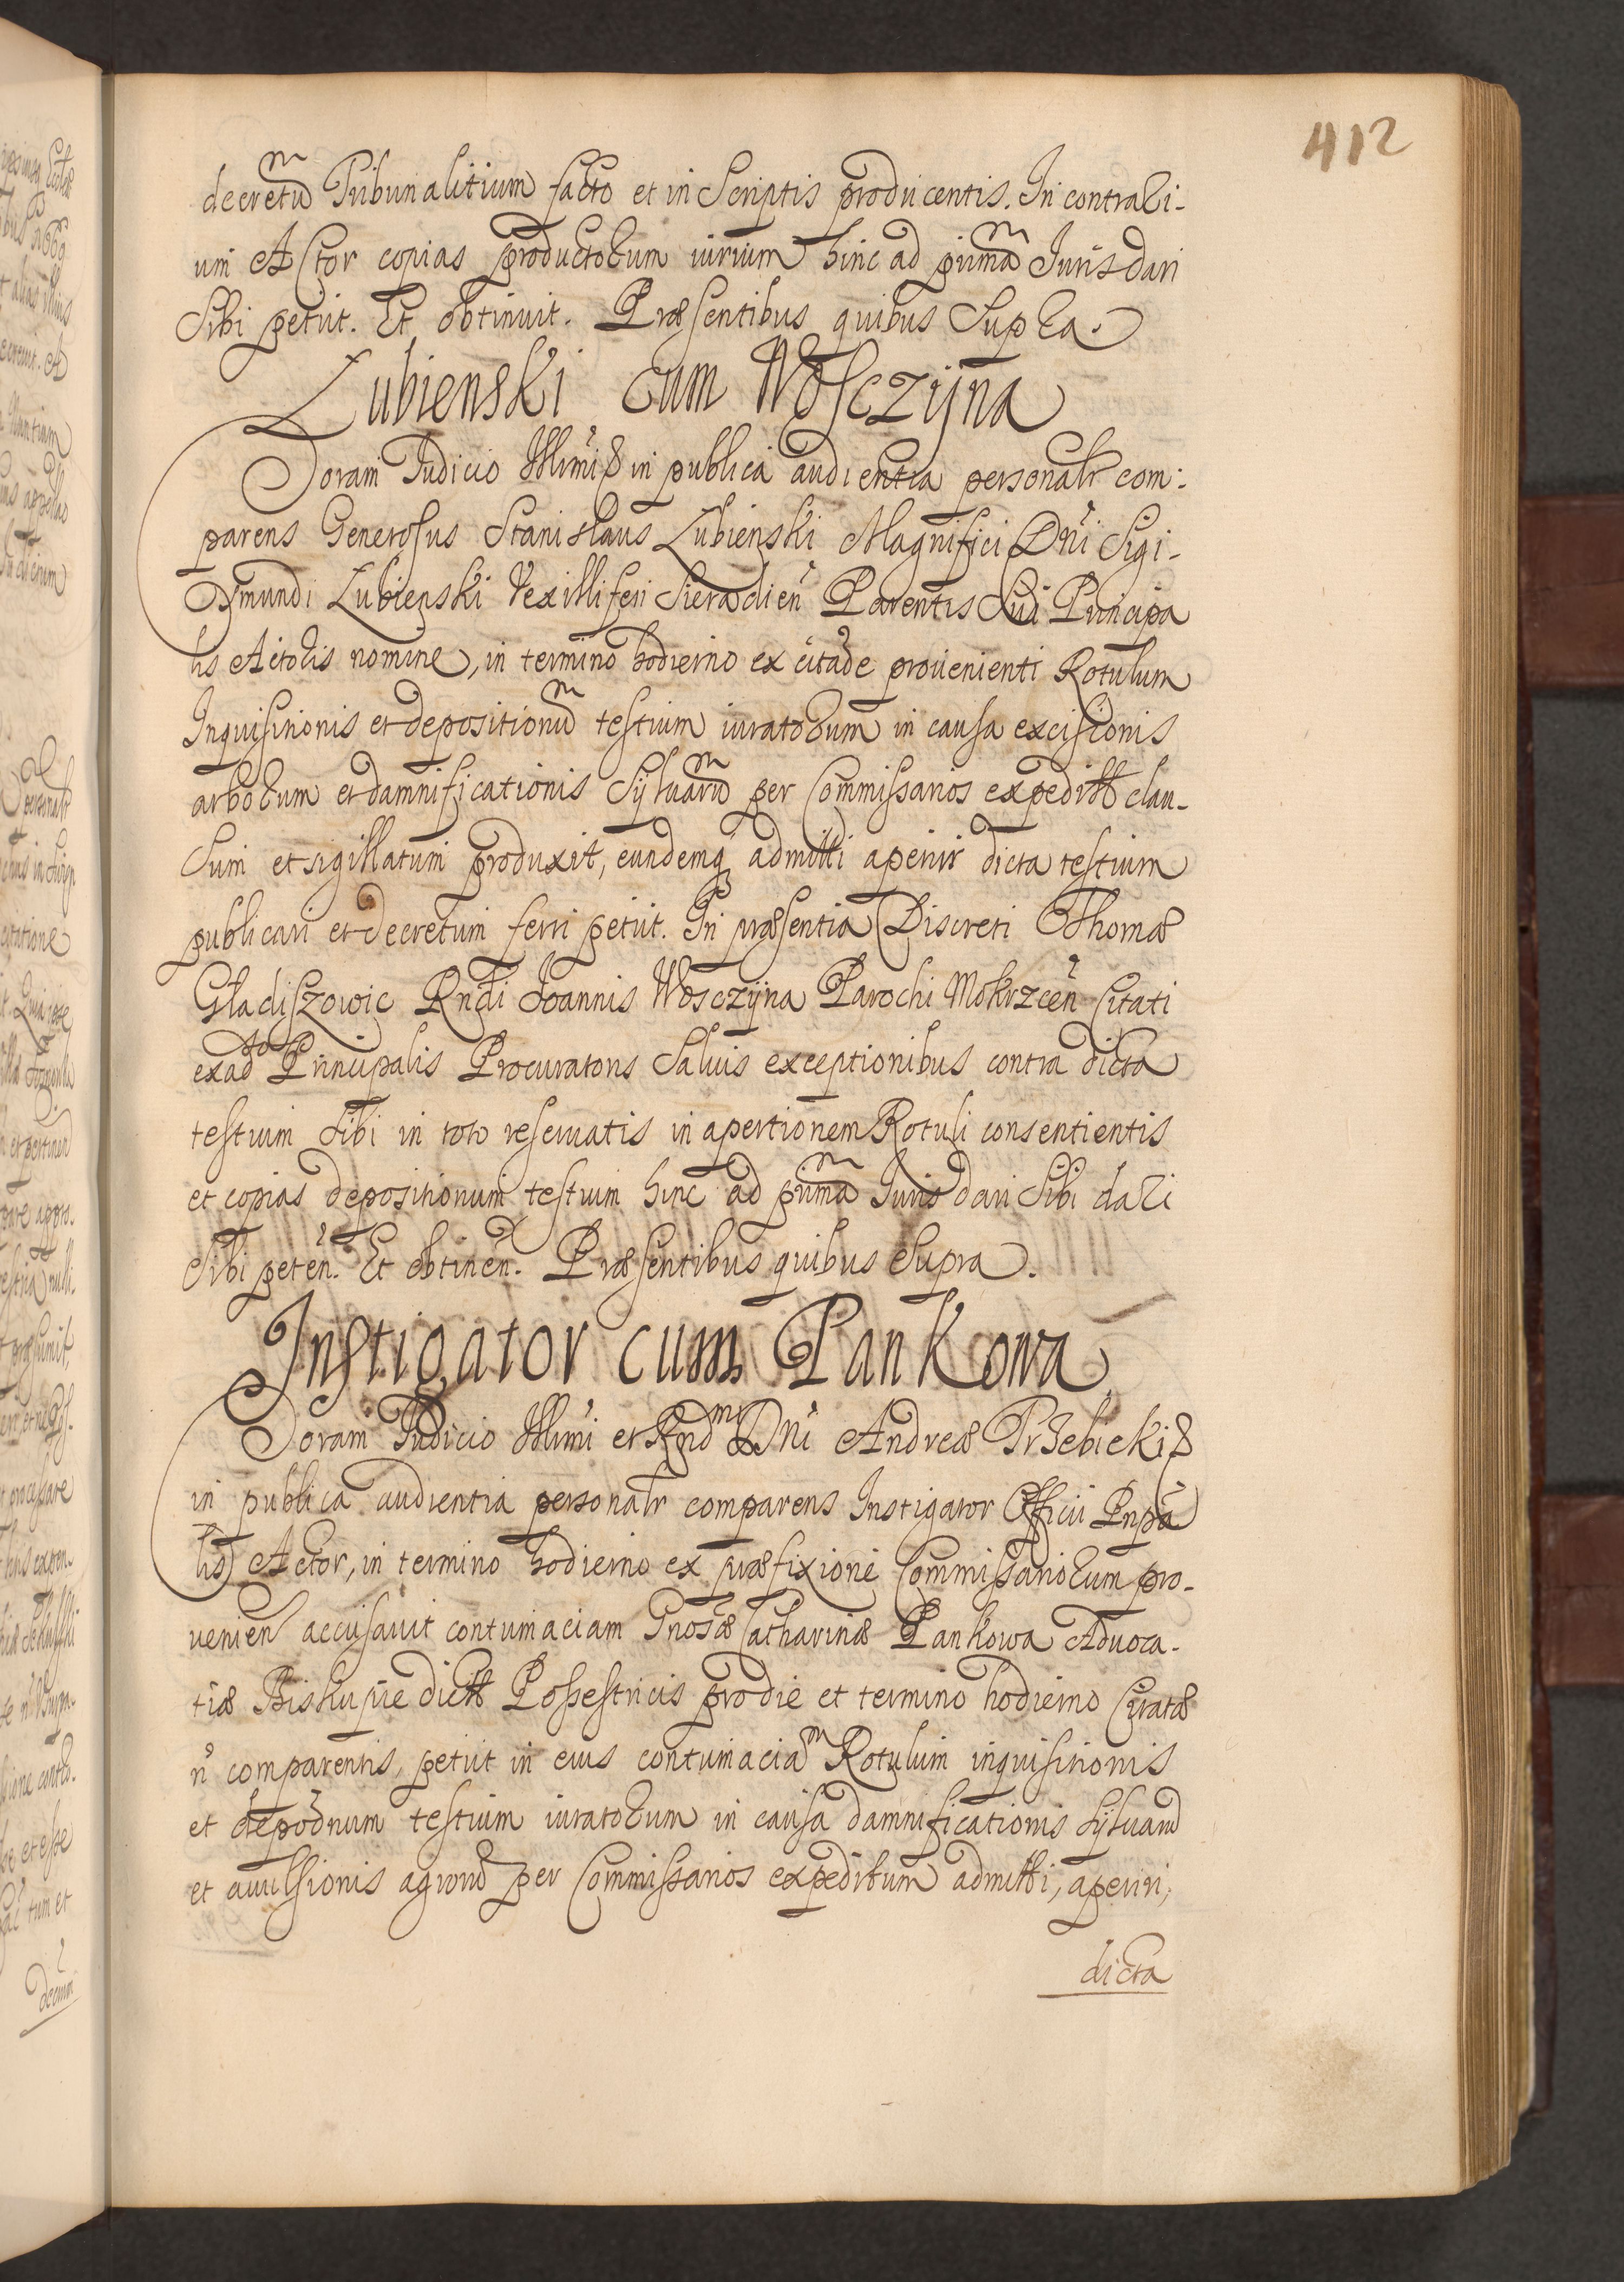 412
decretũ Tribunalitium facto et in Scriptis producentis. In contrari-
um Actor copias productorum iurium hinc ad primã Juris dari
Sibi petiit. Et obtinuit. Præsentibus quibus Supra.
Lubienski cum Wosczyna
Coram Judicio Illmi & in publica audientia personalr com:
parens Generosus Stanislaus Lubienski Magnifici Dni Sigi-
smundi Lubienski Vexilliferi Siradien Parentis Sui Principa
lis Actoris nomine, in termino hodierno ex citãõe provenienti Rotulum
Inquisitionis et depositionũ testium iuratorum in causa excisionis
arborum et damnificationis Sylvarũ per Commissarios expeditt clau-
sum et sigillatum produxit, eundemq admitti aperir dicta testium
publicari et decretum ferri petiit. In præsentia Discreti Thomæ
Gładiszowic Rndi Joannis Wosczyna Parochi Mokrzcen Citati
exad Principalis Procuratoris Salvis exceptionibus contra dicta
testium Sibi in toto reservatis in apertionem Rotuli consentientis
et copias depositionum testium hinc ad primã Juris dari Sibi dari
Sibi peten. Et obtinen. Præsentibus quibus Supra.
Instigator cum Pankowa
Coram Judicio Illmi et Rnd Dni Andreæ Trzebicki &
in publica audientia personalr comparens Instigator Officii Pnpa
lis Actor, in termino hodierno ex præfixione Commissariorum pro-
venien accusavit contumaciam Gnosæ Catharinæ Pankowa Advoca-
tiæ Biskupie dictt Possestricis pro die et termino hodierno Citatæ
n comparentis, petiit in eius contumaciã Rotulum inquisitionis
et depoõnum testium iuratorum in causa damnificationis Sylvarũ
et avulsionis agrorũ per Commissarios expeditum admitti, aperiri,
dicta